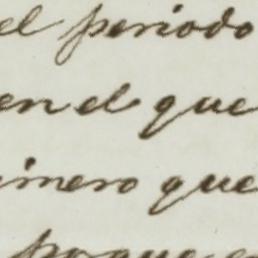 el periodo
en el que
imero que